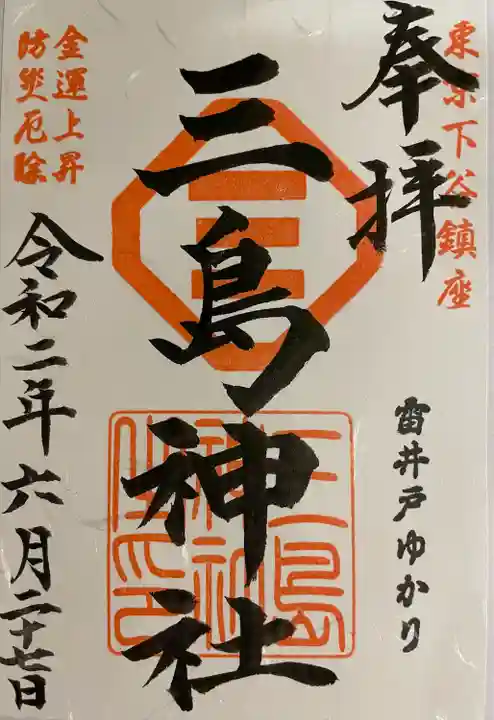 東京下谷鎮座
奉拝
雷井戸ゆかり
三島神社
三島神社之印
金運上昇
防災厄除
令和二年六月二十七日